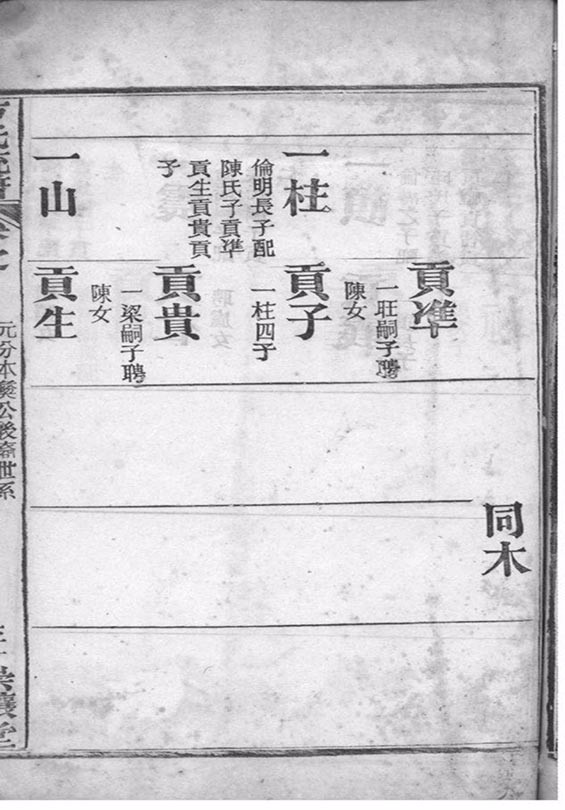 一柱
倫明長子配
陳氏子貢凖
貢生貢貴貢
子
一山
貢凖
一旺嗣子聘
陳女
貢子
一柱四子
貢貴
一梁嗣子聘
陳女
貢生
同木
元分本 公後裔世系
崇讓堂